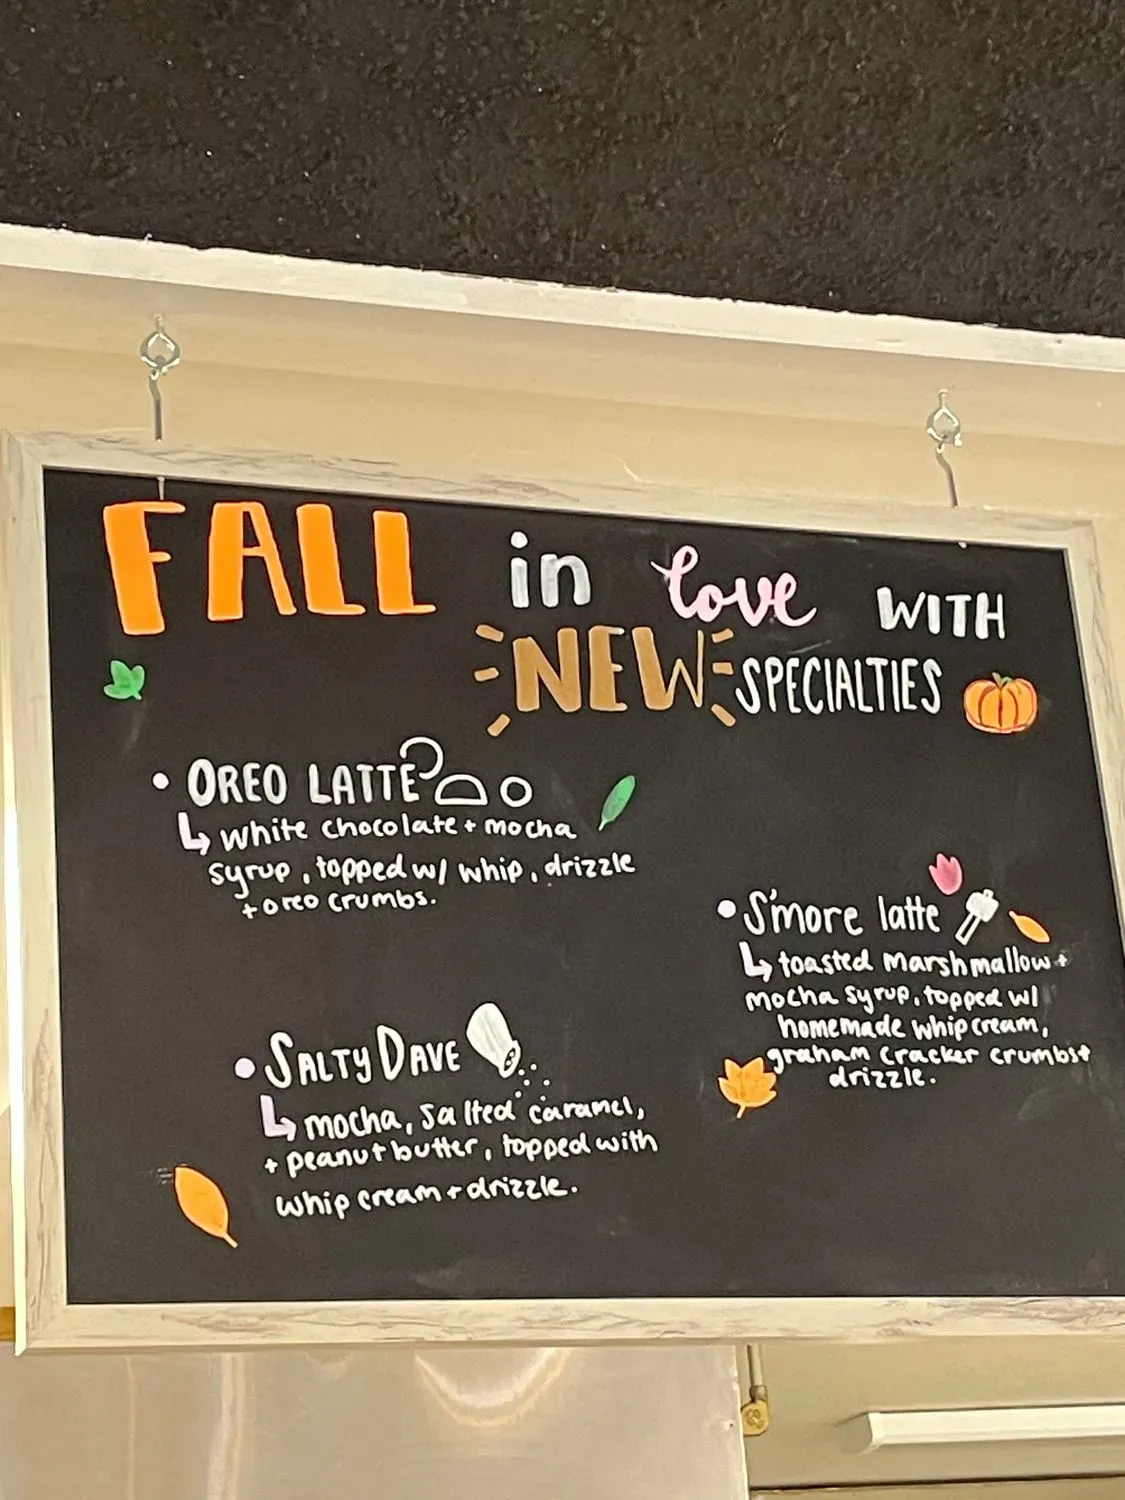 FALL in love WITH
NEW SPECIALTIES
• OREO LATTE
↳ white chocolate + mocha
syrup, topped w/ whip, drizzle
+ oreo crumbs.
• S'more latte
↳ toasted marshmallow +
mocha syrup, topped w/
homemade whip cream,
graham cracker crumbs +
drizzle.
• SALTY DAVE
↳ mocha, salted caramel,
+ peanut butter, topped with
whip cream + drizzle.